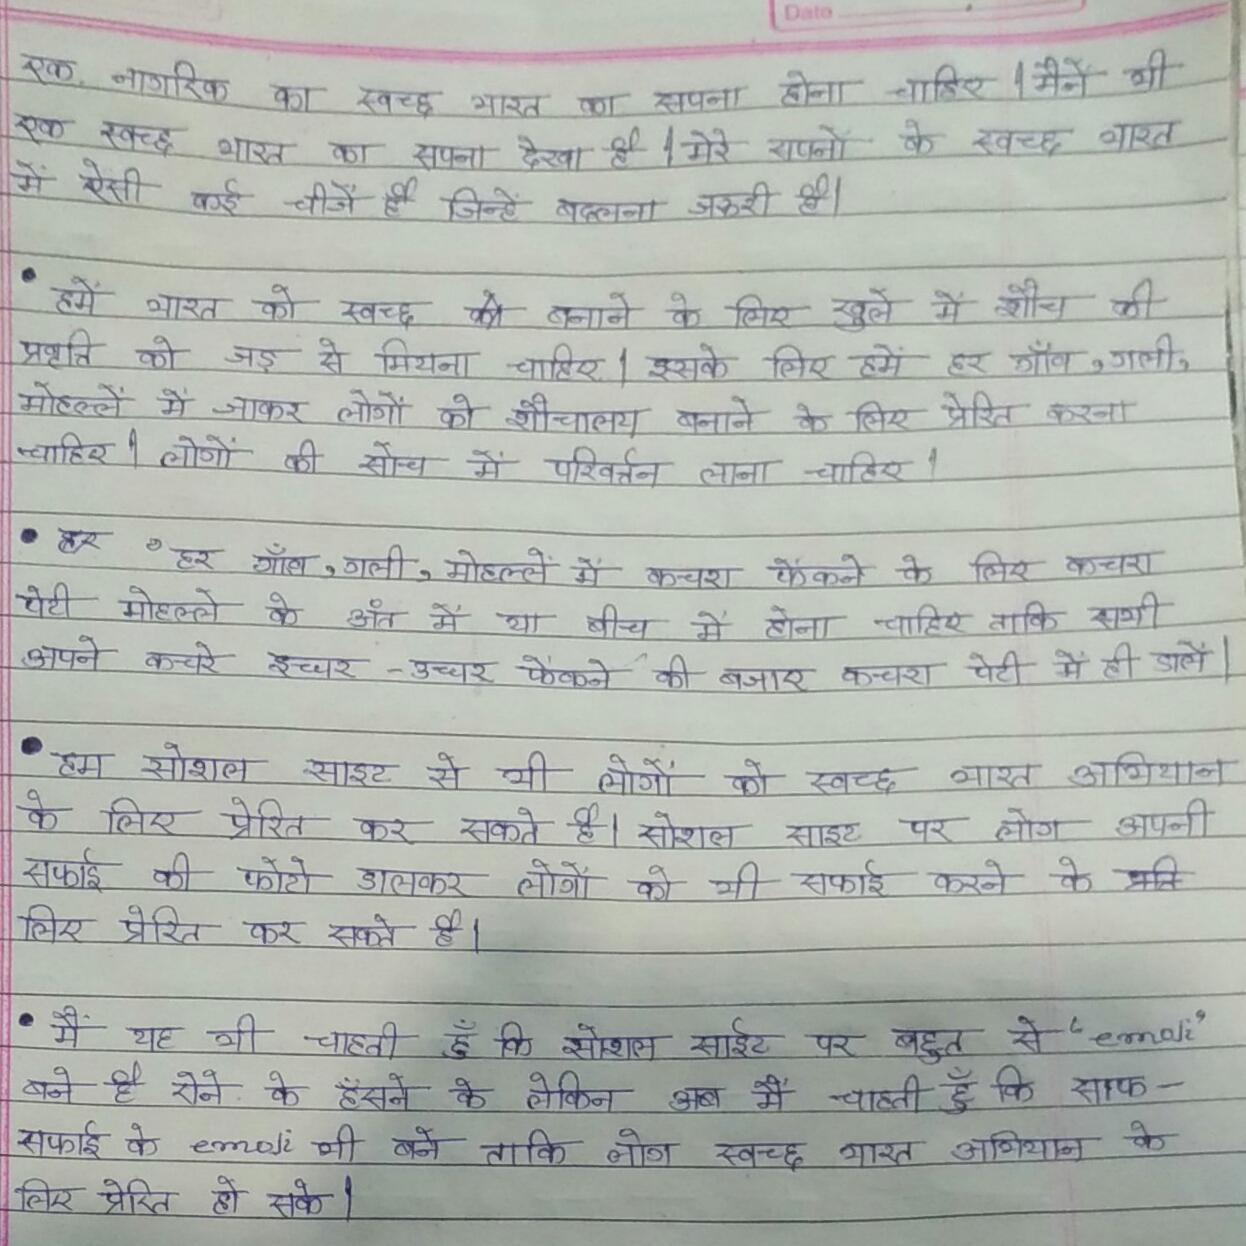 Date
एक नागरिक का स्वच्छ भारत का सपना होना चाहिए। मैनें भी
एक स्वच्छ भारत का सपना देखा है। मेरे सपनों के स्वच्छ भारत
में ऐसी कई चीजें हैं जिन्हें बदलना जरूरी है।
• हमें भारत को स्वच्छ बनाने के लिए खुले में शौच की
प्रवृति को जड़ से मिटाना चाहिए। इसके लिए हमें हर गाँव, गली,
मोहल्लें में जाकर लोगों को शौचालय बनाने के लिए प्रेरित करना
चाहिए। लोगों की सोच में परिवर्तन लाना चाहिए।
• हर ० हर गाँव, गली, मोहल्लें में कचरा फेंकने के लिए कचरा
पेटी मोहल्ले के अंत में या बीच में होना चाहिए ताकि सभी
अपने कचरे इच्चर-उच्चर फेंकने की बजाए कचरा पेटी में ही डालें।
• हम सोशल साइट से भी लोगों को स्वच्छ भारत अभियान
के लिए प्रेरित कर सकते हैं। सोशल साइट पर लोग अपनी
सफाई की फोटो डालकर लोगों को भी सफाई करने के प्रति
लिए प्रेरित कर सकते हैं।
• मैं यह भी चाहती हुँ कि सोशल साईट पर बहुत से "emoji"
बने हैं रोने के हँसने के लेकिन अब मैं चाहती हुँ कि साफ-
सफाई के emoji भी बनें ताकि लोग स्वच्छ भारत अभियान के
लिए प्रेरित हो सके।